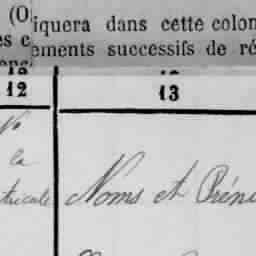 (O
iquera dans cette colon
es c
ements successifs de ré
12
13
No
la
tricule
Noms et Préno